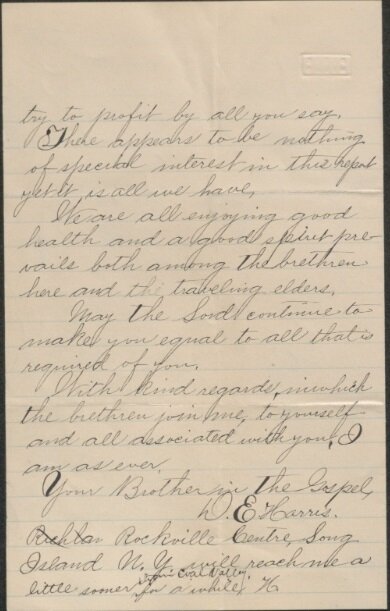 try to profit by all you say.
There appears to be nothing
of special interest in this report
yet it is all we have,
We are all enjoying good
health and a good spirit pre-
vails both among the brethren
here and the traveling elders.
May the Lord continue to
make you equal to all that is
required of you.
With kind regards, in which
the brethren join me, to yourself
and all associated with you, I
am as ever,
Your Brother in the Gospel,
D. E Harris.
Rockville Centre, Long
Island N. Y. will reach me a
little sooner than Oval Valley, for a while, H